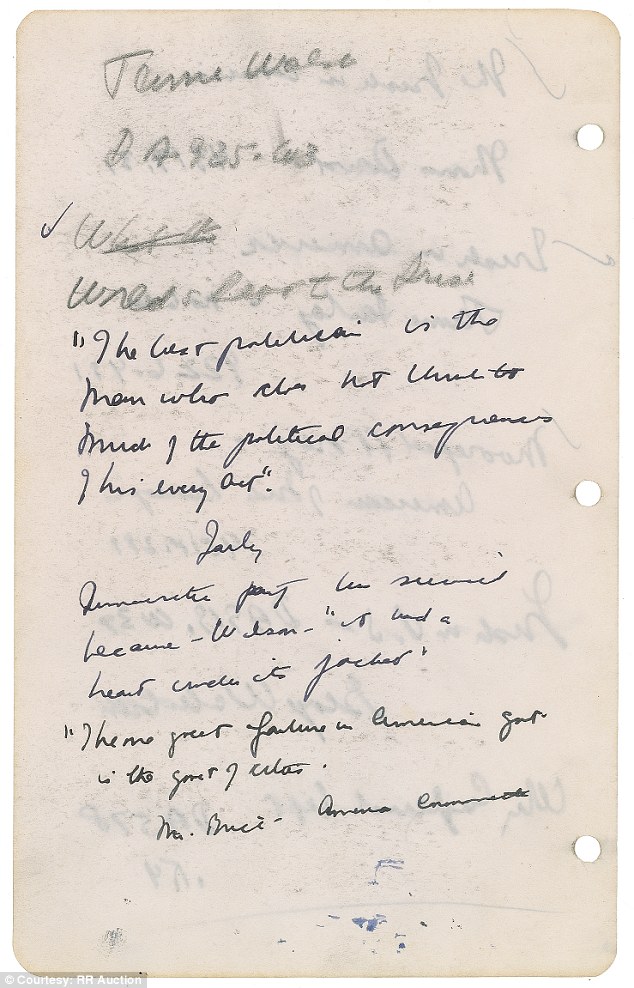 James Walsh
D A 935. W3
What the
World's Debt to the Irish
"The best politician is the
man who does not think to
much of the political consequences
of his every act".
Farley
Democratic party has survived
because - Wilson - "it had a
heart under its jacket"
"The one great failure in American govt
is the govt of cities.
Mr. Bryce - America Commonwealth
© Courtesy: RR Auction